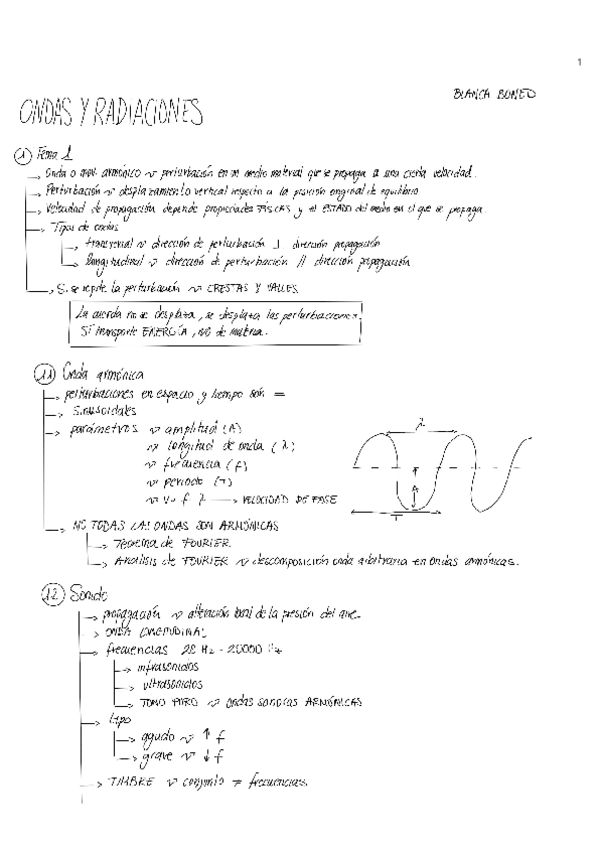 1
BLANCA BONED
ONDAS Y RADIACIONES
1) Tema 1
→ Onda o mov. armónico ~> perturbación en un medio material que se propaga a una cierta velocidad.
→ Perturbación ~> desplazamiento vertical respecto a la posición original de equilibrio
→ Velocidad de propagación depende propiedades FÍSICAS y el ESTADO del medio en el que se propaga.
→ Tipos de ondas
→ transversal ~> dirección de perturbación ⊥ dirección propagación
→ longitudinal ~> dirección de perturbación // dirección propagación
→ Si se repite la perturbación ~> CRESTAS Y VALLES
La cuerda no se desplaza, se desplaza las perturbaciones.
Sí transporte ENERGÍA, NO de materia.
1.1) Onda armónica
→ perturbaciones en espacio y tiempo son =
→ sinusoidales
→ parámetros ~> amplitud (A)
~> longitud de onda (λ)
~> frecuencia (f)
~> periodo (T)
~> v = f λ → VELOCIDAD DE FASE
λ
T
→ NO TODAS LAS ONDAS SON ARMÓNICAS
→ Teorema de FOURIER
→ Análisis de FOURIER ~> descomposición onda arbitraria en ondas armónicas.
1.2) Sonido
→ propagación ~> alteración local de la presión del aire.
→ ONDA LONGITUDINAL
→ frecuencias 20 Hz - 20000 Hz
→ infrasonidos
→ ultrasonidos
→ TONO PURO ~> ondas sonoras ARMÓNICAS
→ tipo
→ agudo ~> ↑ f
→ grave ~> ↓ f
→ TIMBRE ~> conjunto ≠ frecuencias